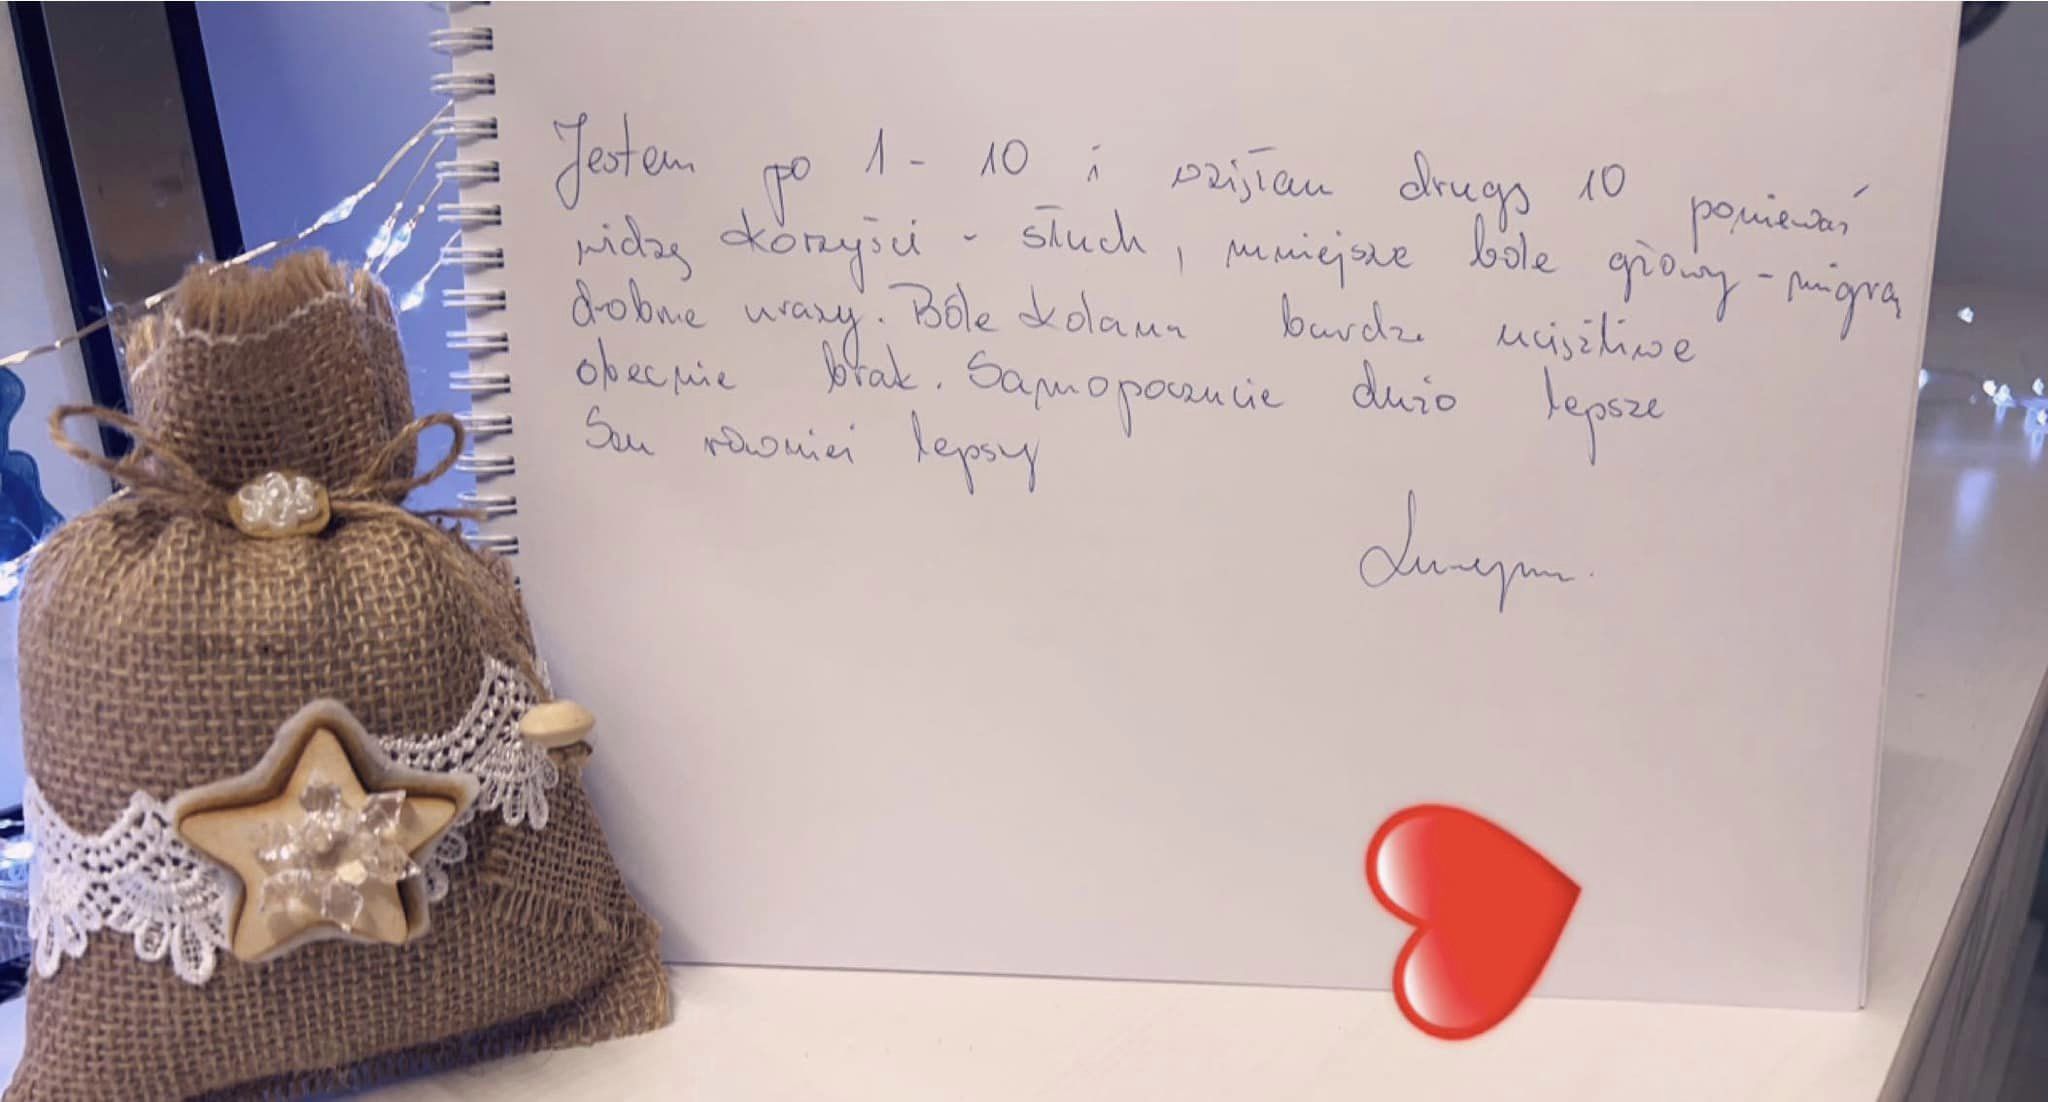 Jestem po 1 - 10 i wzięłam drugą 10 ponieważ
widzę korzyści - słuch, mniejsze bole głowy - migrą
drobne urazy. Bóle kolana bardzo uciążliwe
obecnie brak. Samopoczucie dużo lepsze
Sen również lepszy